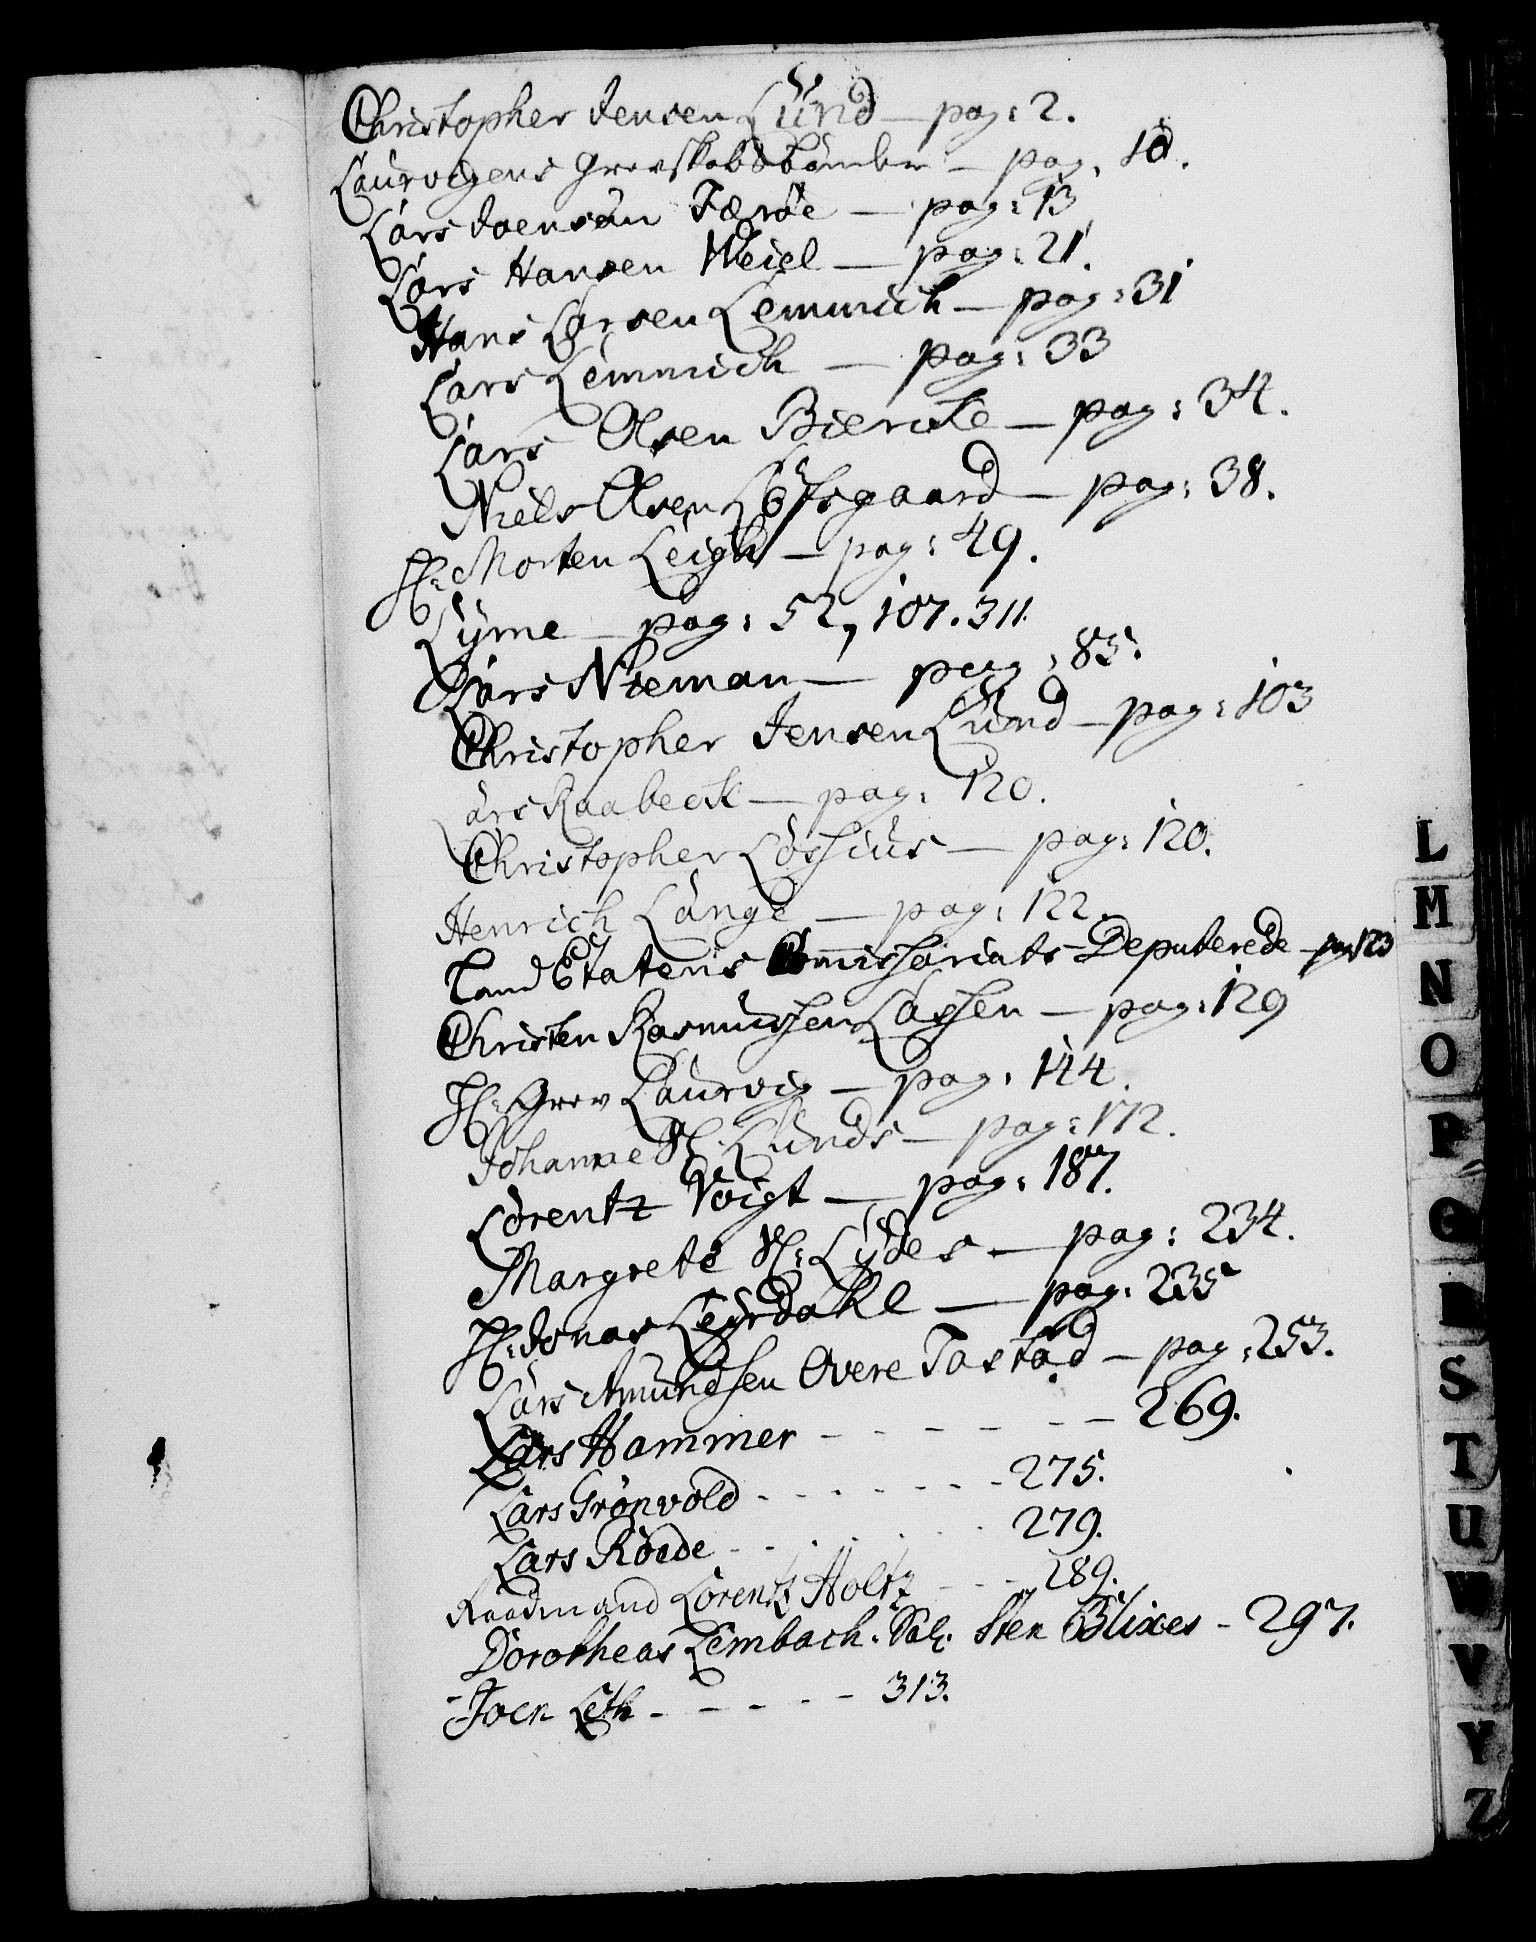 Christopher Jensen Lünd — pag: 2.
Laurvigens Grevskabs bønder — pag. 10.
Lars Joensøn Færøe — pag: 13
Lars Hansen Weiel — pag: 21.
Hans Larsen Lemmich — pag: 31
Lars Lemmich — pag: 33
Lars Olsen Biercke — pag: 34.
Niels Olsen Löfsgaard — pag: 38.
Hr: Morten Leigh — pag: 49.
Lyme — pag: 52, 107. 311.
Lars Nieman — pag: 85.
Christopher Jensen Lünd — pag: 103
Lars Raabeck — pag: 120.
Christopher Lossius — pag: 120.
Henrich Lange — pag: 122.
Land Etatens Commissariats Deputerede — pag 123
Christen Rasmussen Lassen — pag: 129
Hr: Grev Laurvig — pag: 144.
Johanne Sl: Lunds — pag: 172.
Lorentz Voigt — pag: 187.
Margrete Sl: Lydes — pag: 234.
Hr: Jonas Leyrdahl — pag: 235
Lars Amundsen Overe Tastad — pag: 253.
Lars Hammer - - - - - - 269.
Lars Grønvold - - - - - - - 275.
Lars Röede - - - - - - 279.
Raadmand Lorentz Holtz - - - 289.
Dorotheas Lembach. Sal. Sten Blixes - 297.
Joen Leth - - - - - 313.
L
M
N
O
P
Q
R
S
T
U
W
V
Y
Z